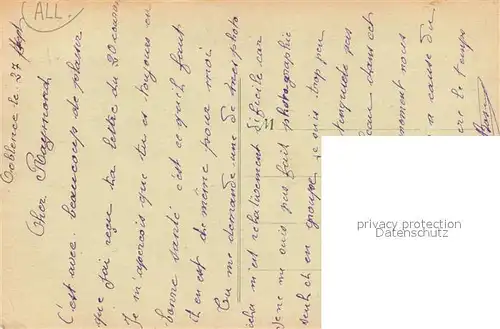 ALL.
Coblence le 27
Cher Raymond,
C'est avec beaucoup de plaisir
que j'ai reçu ta lettre du 20 cour
je m'aperçois que tu es toujours en
bonne santé c'est ce qu'il faut
il en est de même pour moi
Tu me demande une de mes photo
cela m'est relativement dificile car
je ne me suis pas fait photographié
seul en groupe je suis trop peu
pas
dans cet
moment nous
a cause du
le temps
11
privacy protection
Datenschutz